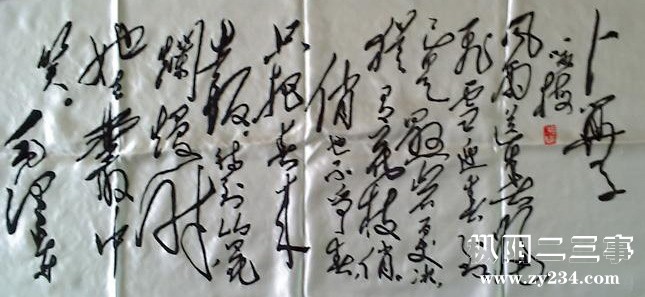 卜算子
咏梅
風雨送春歸
飛雪迎春到
已是懸岩百丈冰
猶有花枝俏
俏也不争春
只把春来
報。待到山花
爛熳时
她在叢中
笑。毛泽东
枞阳二三事
www.zy234.com